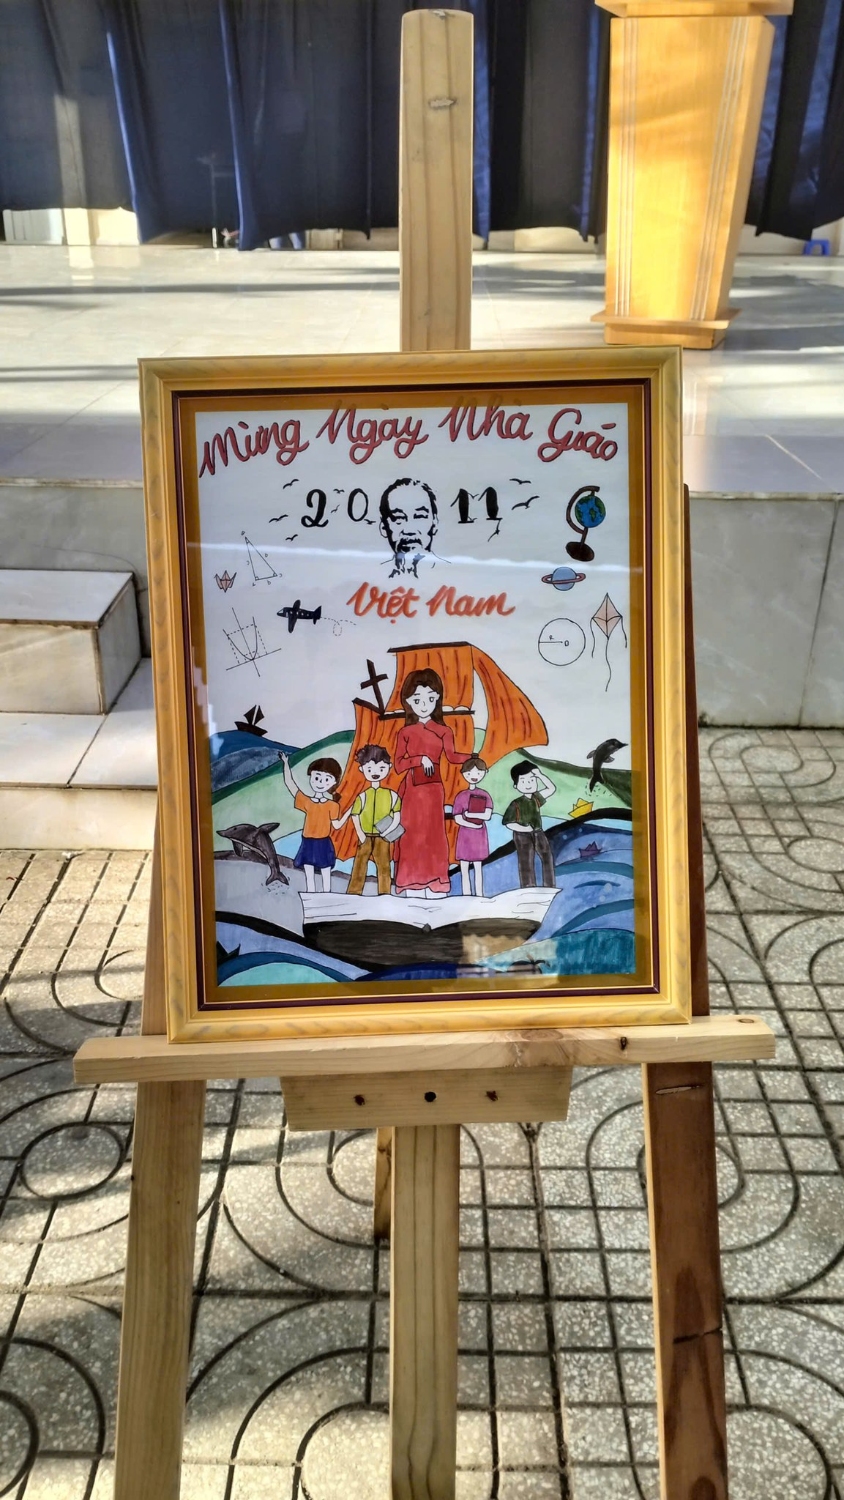 Mừng Ngày Nhà Giáo
20 11
Việt Nam